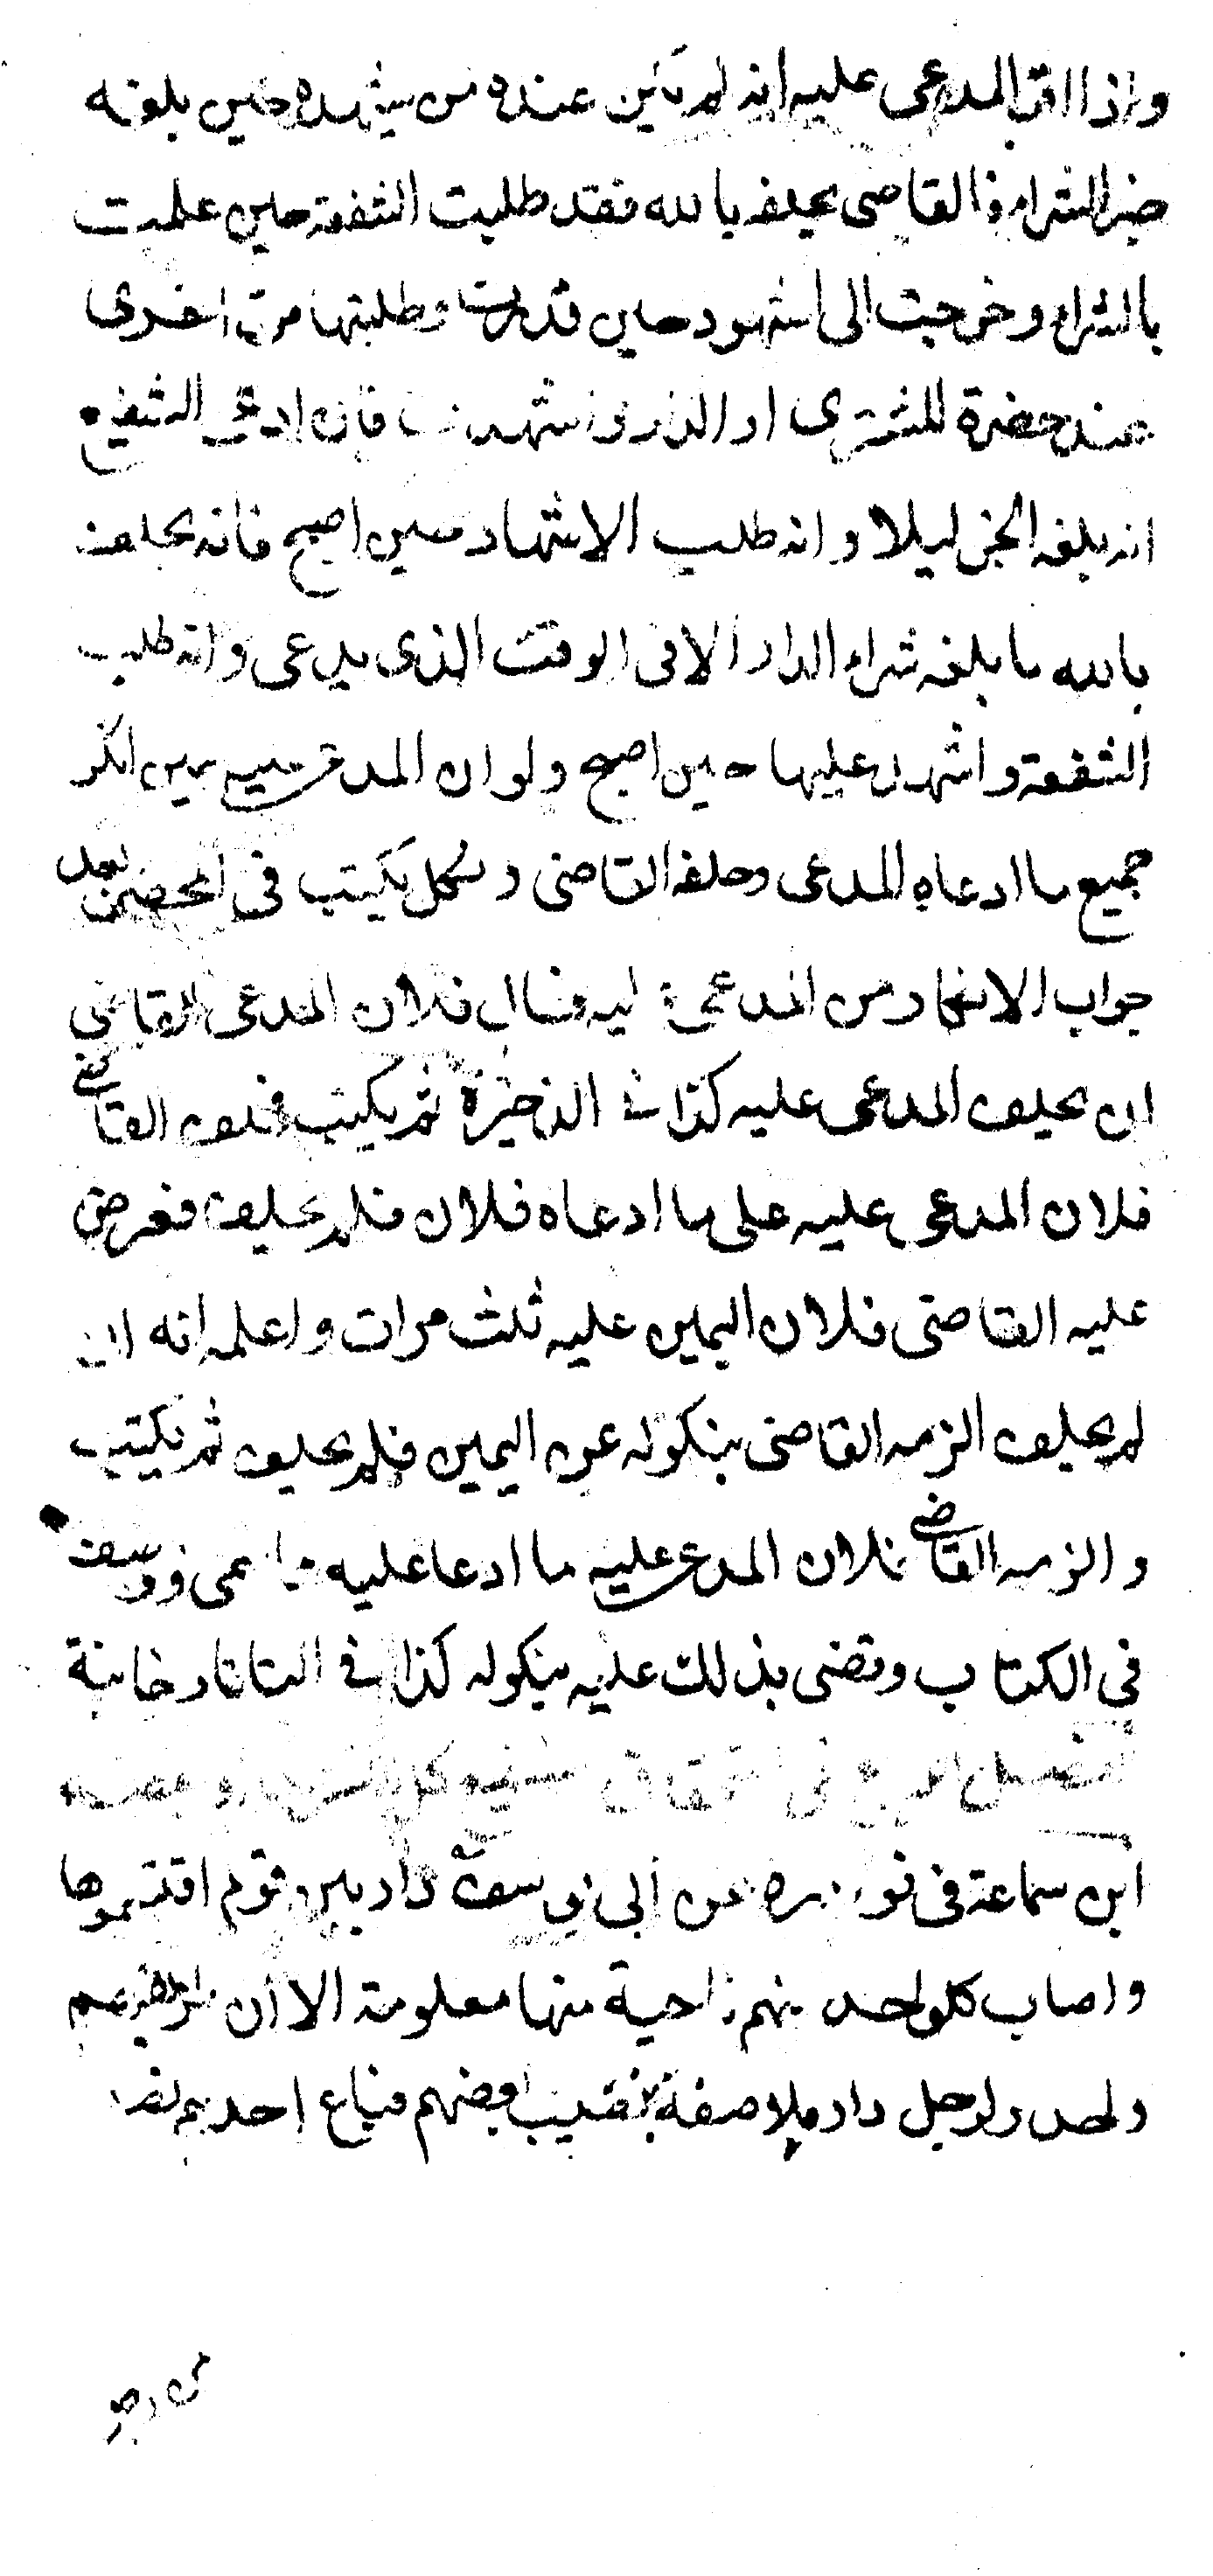 واذا اقر المدعى عليه انه لم يكن عنده من يشهده حين بلغه
خبر الشراء فالقاضى يحلفه بالله فقد طلبت الشفعة حين علمت
بالشراء وخرجت الى الشهود حين قدرت وطلبتها مرة اخرى
عند حضرة المشترى او الدار واشهدت فان ادعى الشفيع
انه بلغه الخبر ليلا وانه طلب الاشهاد حين اصبح فانه يحلف
بالله ما بلغه شراء الدار الا فى الوقت الذى يدعى وانه طلب
الشفعة واشهد عليها حين اصبح ولو ان المدعى عليه حين انكر
جميع ما ادعاه المدعى وحلفه القاضى ونكل يكتب فى المحضر بعد
جواب الانكار من المدعى عليه فسال فلان المدعى القاضى
ان يحلف المدعى عليه كذا فى الذخيرة ثم يكتب فحلف القاضى
فلان المدعى عليه على ما ادعاه فلان فلم يحلف فعرض
عليه القاضى فلان اليمين عليه ثلث مرات واعلمه انه ان
لم يحلف الزمه القاضى بنكوله عن اليمين فلم يحلف ثم يكتب
والزمه القاضى فلان المدعى عليه ما ادعا عليه مما سمى ووصف
فى الكتاب وقضى بذلك عليه بنكوله كذا فى التاتارخانية
الفصل الرابع فى استحقاق الشفيع كل المشترى او بعضه
ابن سماعة فى نوادره عن ابى يوسف دار بين قوم اقتسموها
واصاب كل واحد منهم ناحية منها معلومة الا ان طريقهم
واحد ولرجل دار ملاصقة بنصيب بعضهم فباع احدهم